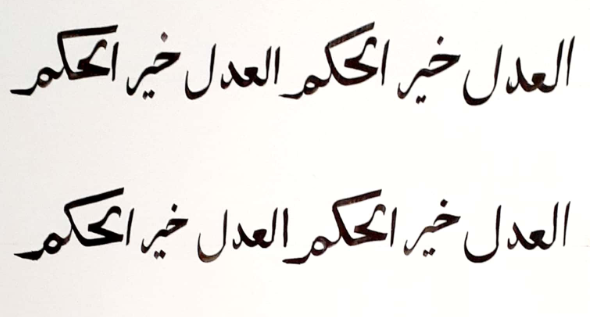 العدل خير الحكم العدل خير الحكم
العدل خير الحكم العدل خير الحكم